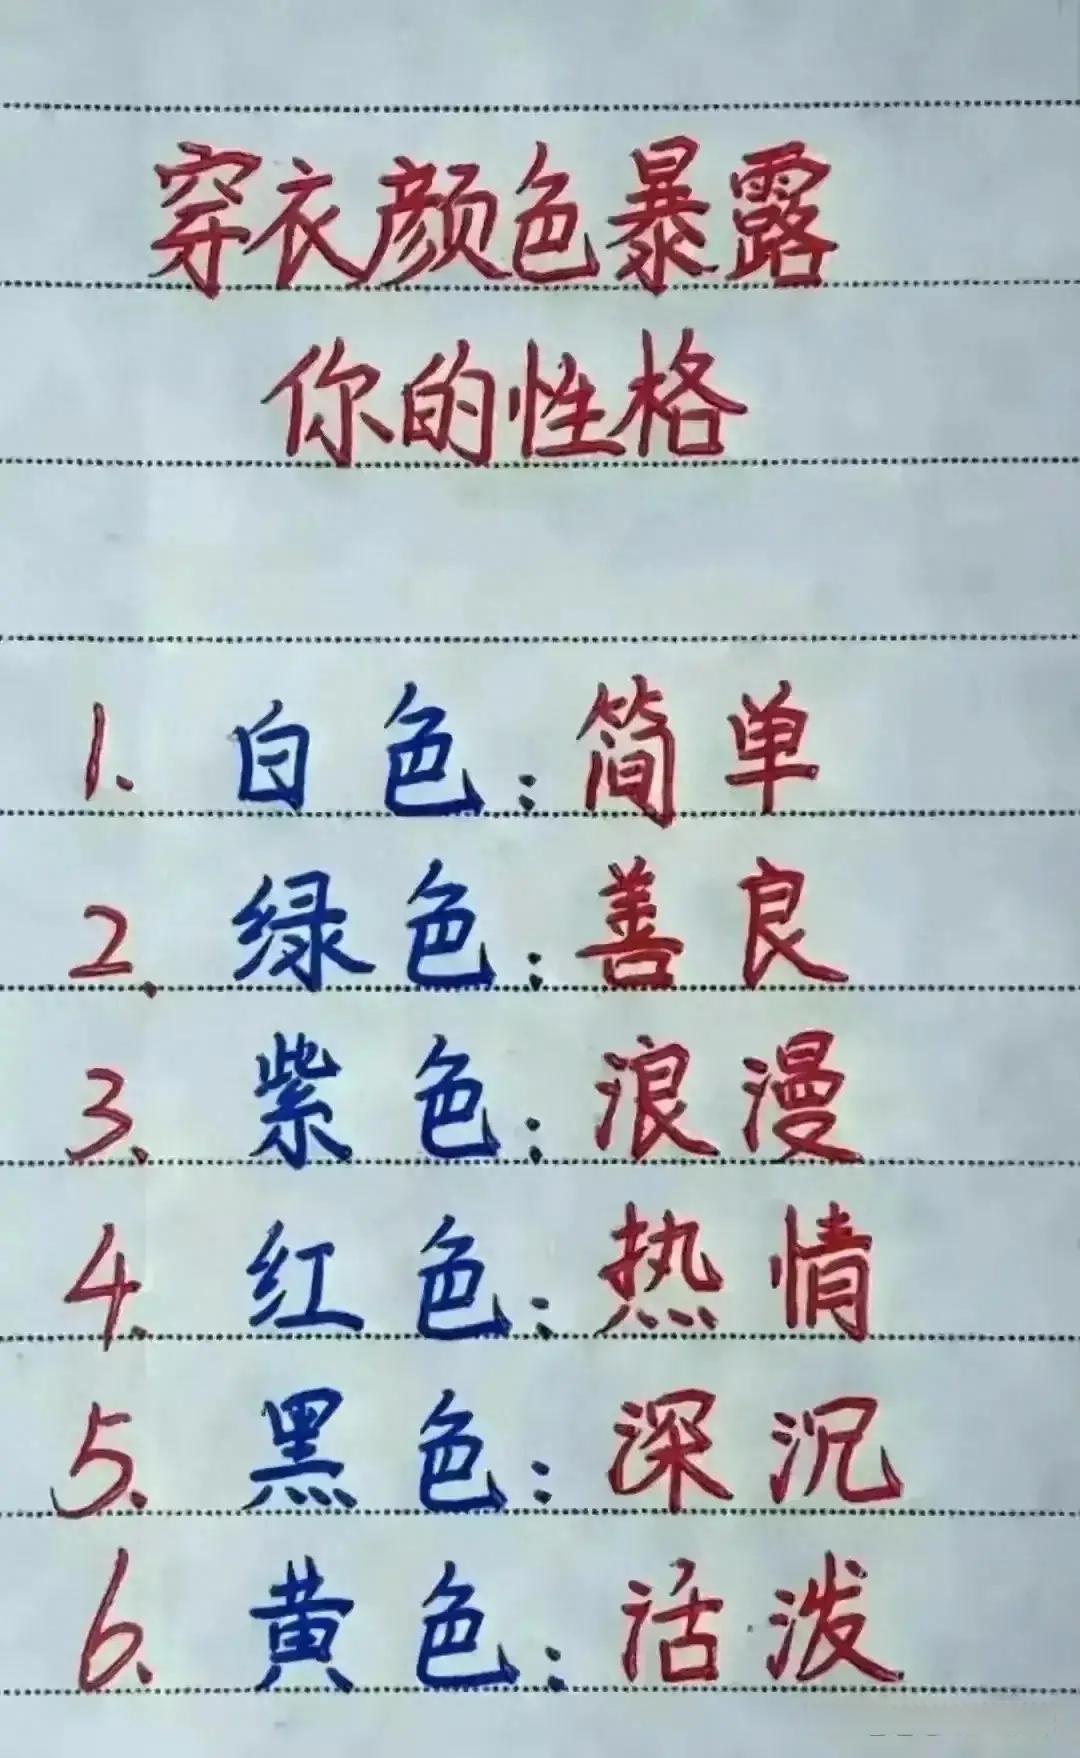 穿衣颜色暴露
你的性格
1. 白色:简单
2. 绿色:善良
3. 紫色:浪漫
4. 红色:热情
5. 黑色:深沉
6. 黄色:活泼